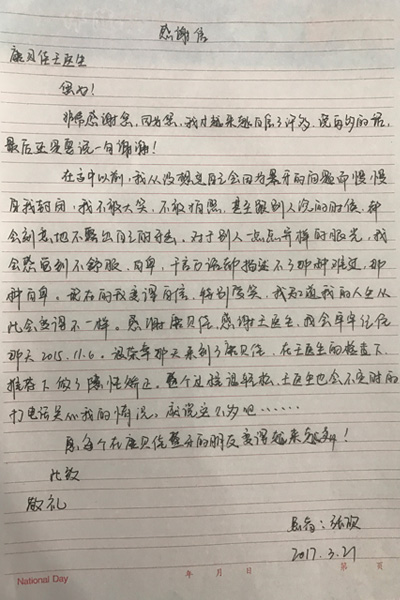 感谢信
康贝佳王医生
您好！
非常感谢您，因为您，我才越来越自信了许多，说再多的话，
最后还是要说一句谢谢！
在高中以前，我从没想过自己会因为牙齿的问题而慢慢
自我封闭，我不敢大笑，不敢拍照，甚至跟别人说的时候，都
会刻意地不露出自己的牙齿。对于别人一点点异样的眼光，我
会感觉到不舒服、自卑，千言万语都描述不了那种难过，那
种自卑。现在的我变得自信，特别爱笑，我知道我的人生从
此会变得不一样。感谢康贝佳，感谢王医生，我会牢牢记住
那天2015.11.6。很荣幸那天来到了康贝佳，在王医生的检查下
推荐下做了隐性矫正。整个过程很轻松，王医生也会不定时的
打电话关心我的情况，
愿每个在康贝佳整牙的朋友变得越来越好！
此致
敬礼
患者：张欣
2017.3.21
National Day
年 月 日
第 页